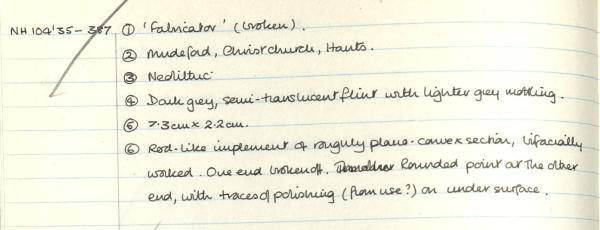 NH 104'35-387 ① 'Fabricator' (broken).
② Mudeford, Christchurch, Hants.
③ Neolithic
④ Dark grey, semi-translucent flint with lighter grey mottling.
⑤ 7.3cm x 2.2cm.
⑥ Rod-like implement of roughly plano-convex section, bifacially
worked. One end broken off. Rounded point at the other
end, with traces of polishing (from use?) on under surface.